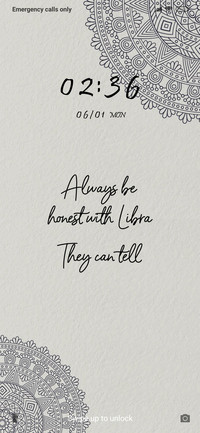 Emergency calls only
02:36
06/01 MON
Always be
honest with Libra
They can tell
to unlock